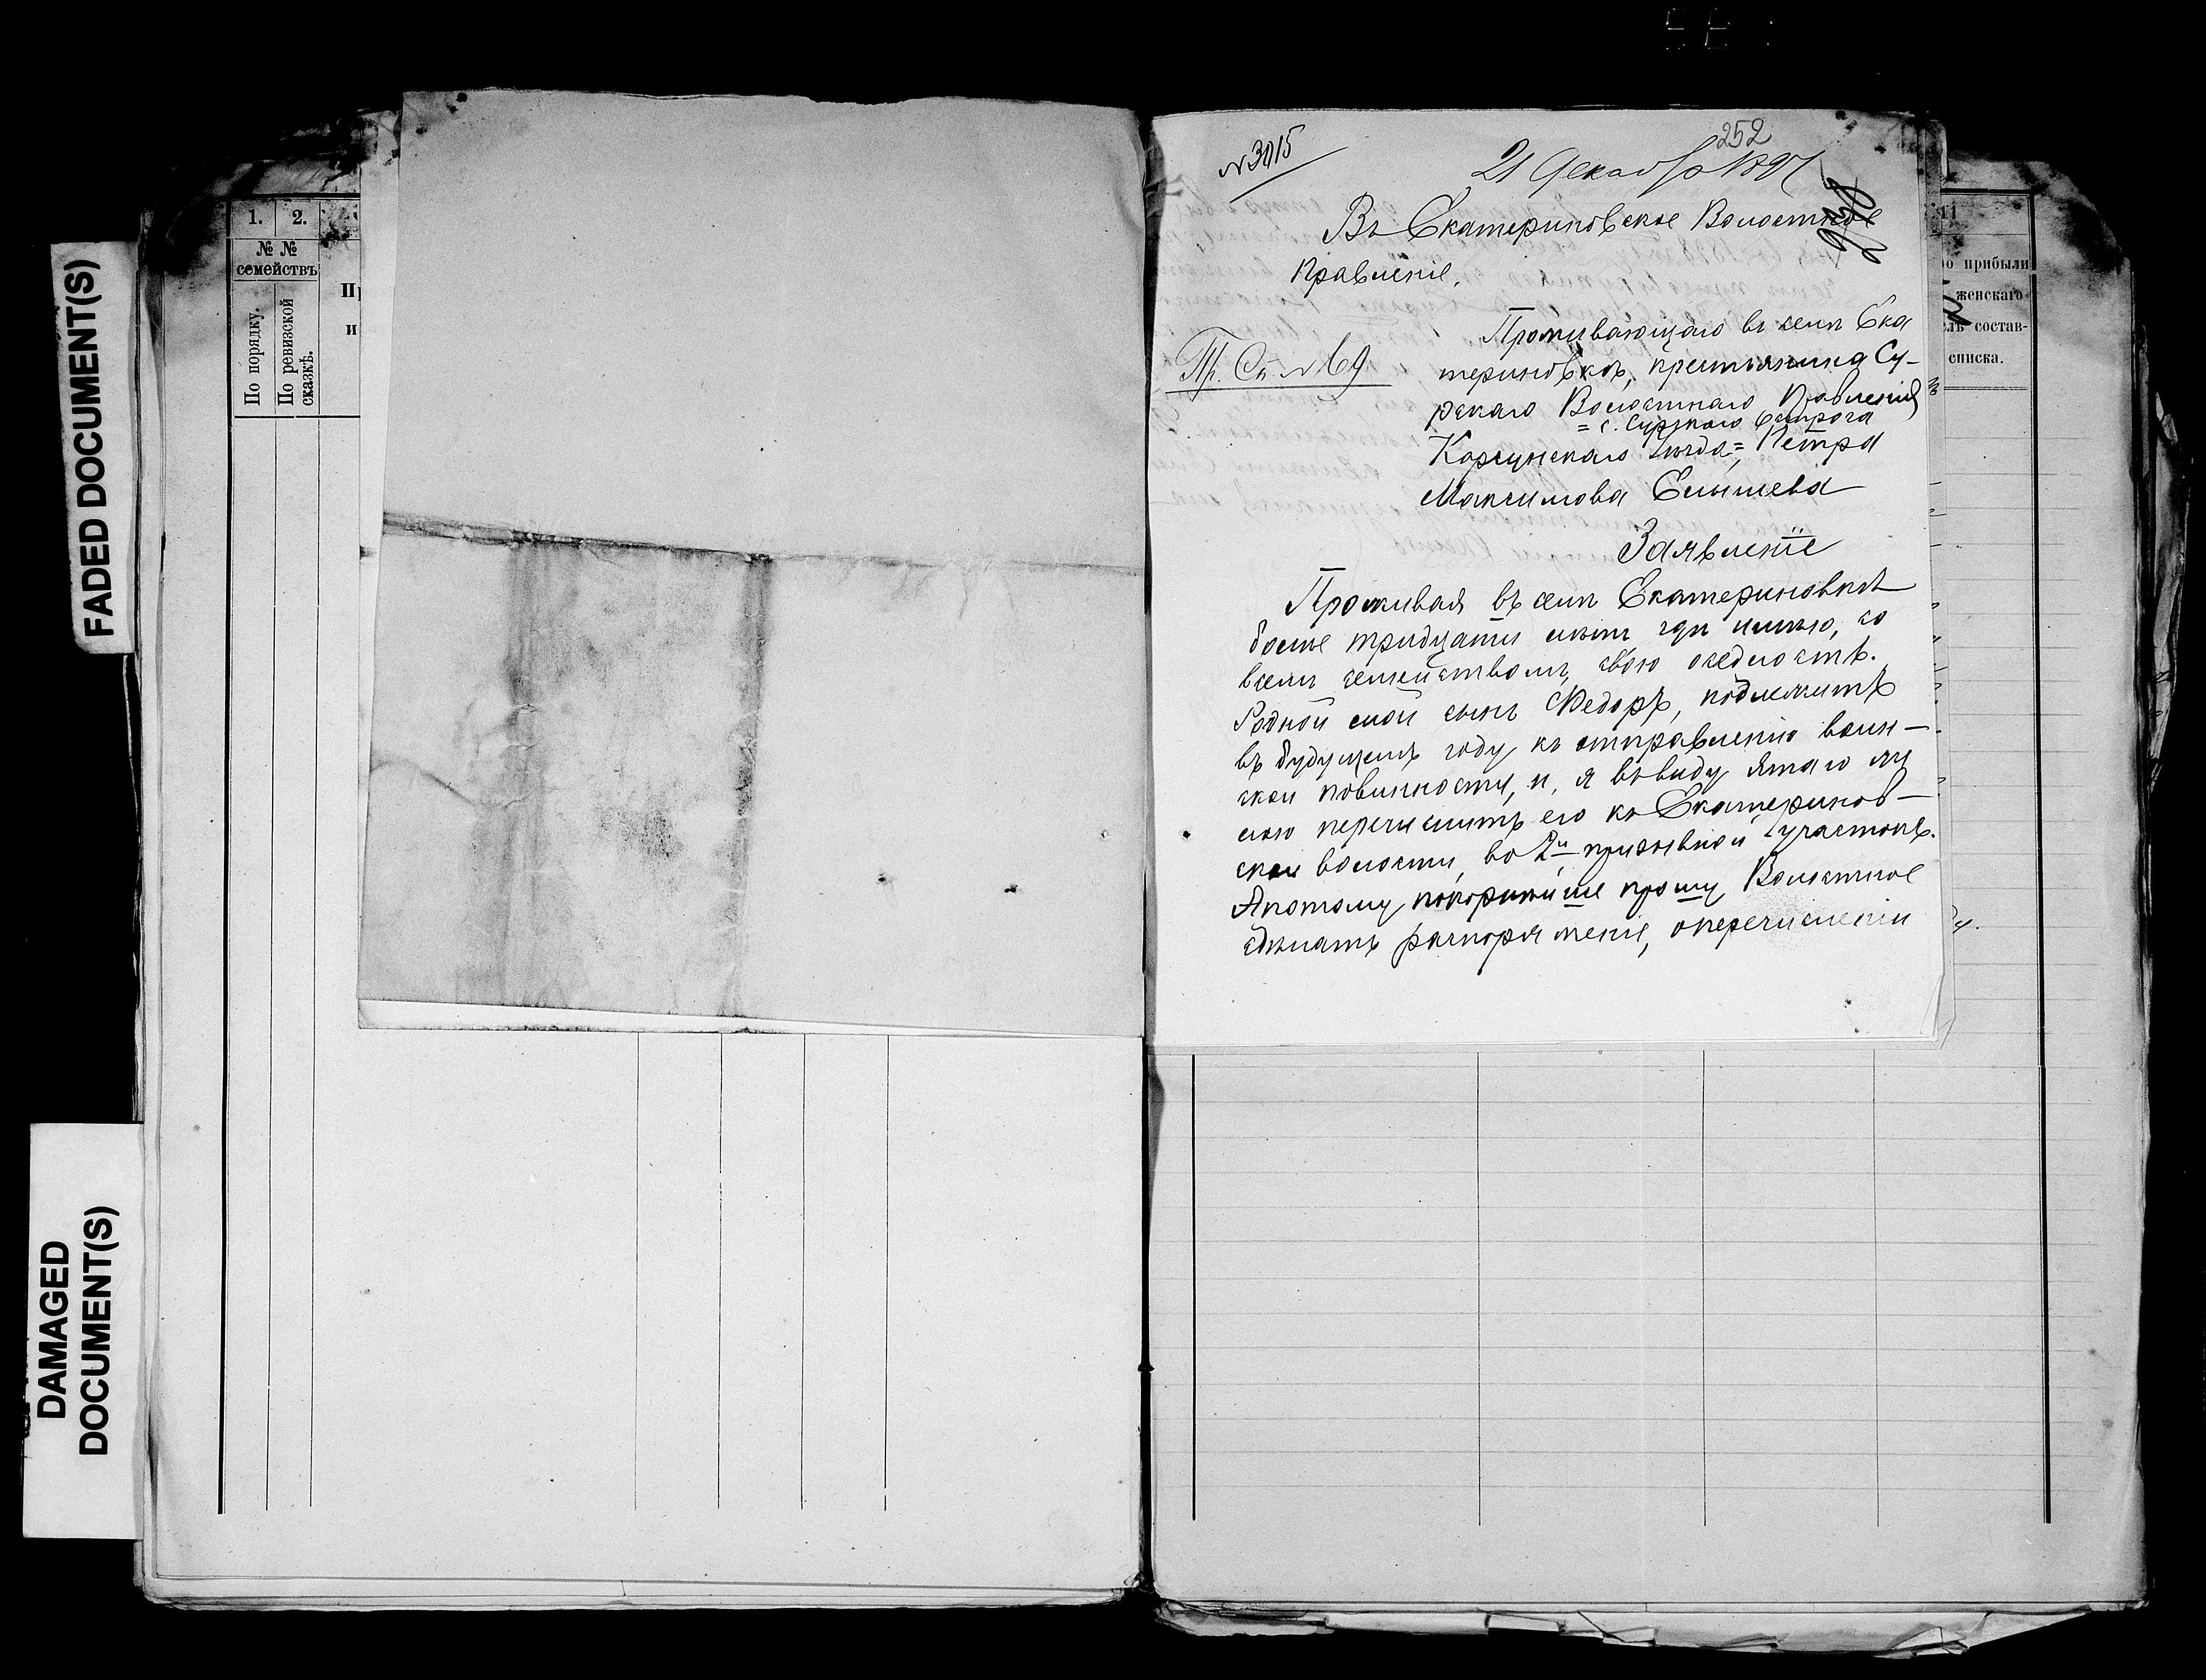 FADED DOCUMENT(S)
DAMAGED
DOCUMENT(S)
1. 2.
№ №
семействъ
По порядку.
По ревизской
сказкѣ.
№ 3015
252
21 Декабр 1897
Въ Екатериновское Волостное
Правленіе.
Пр. Сп. № 69
Проживающаго въ селѣ Ека
териновкѣ, крестьянина Су-
рскаго Волостнаго Правленія
= с. Сурскаго Острога
Карсунскаго уѣзда =, Петра
Максимова Елышева
Заявленіе
Проживая въ селѣ Екатериновкѣ
более тридцати лѣтъ гдѣ имѣю, со
всемъ семействомъ, свою оседлость.
Родной мой сынъ Федоръ, подлежитъ
въ будущемъ году, къ отправленію воин-
ской повинности, и, я въ виду этаго же
лаю перечислить его къ Екатеринов-
ской волости, во 2й призывной участокъ.
А потому покорнѣйше прошу Волостное
сдѣлать распоряженіе, о перечисленіи
11
о прибыли
женскаго
состав-
списка.